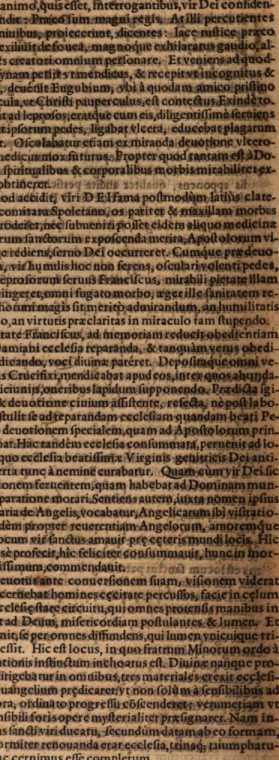 animo, quis esset, Interrogantibus, vir Dei confiden-
dit: Præco sum magni regis. At illi percutientes
niuibus, proiecerunt, dicentes: Iace rustice præco
exiliuit de fouea, magnoque exhilaratus gaudio, al-
s creatori omnium personare. Et veniens ad quod-
ynam petiit vt mendicus, & recepit vt incognitus &
, deuenit Eugubium, vbi à quodam amico pristino
cula, vt Christi pauperculus, est contectus. Exinde to-
it ad leprosos, eratque cum eis, diligentissimè seruiens
t ipsorum pedes, ligabat vlcera, educebat plagarum
. Osculabatur etiam ex miranda deuotione vlcero-
medicus mox futurus. Propter quod tantam est à Do-
spiritualibus & corporalibus morbis mirabiliter ex-
btineret.
od accidit, viri DEI fama postmodum latius clare-
comitatu Spoletano, os pariter & maxillam morbus
rodeser, nec subueniri posset eidem aliquo medicina
rum sanctorum exposcenda merita, Apostolorum vi-
e rediens, seruo Dei occurreret. Cumque præ deuo
, vir humilis hoc non ferens, osculari volenti pedes,
eprosorum seruus Franciscus, mirabili pietate illam
ingeret, omni fugato morbo, æger ille sanitatem re-
horum magis sit meritò admirandum, an humilitatis
o, an virtutis præclaritas in miraculo tam stupendo.
tate Franciscus, ad memoriam reducit obedientiam
amiani ecclesia reparanda, & tanquàm verus obedi-
dicando, voci diuinæ pareret. Depositaque omni ve-
s Crucifixi, mendicabat apud eos, inter quos abunda-
iciuniis, oneribus lapidum supponendo. Prædicta igi-
& deuotione ciuium assistente, refecta, ne post labo-
stulit se ad reparandam ecclesiam quandam beati Pe-
deuotionem specialem, quam ad Apostolorum prin-
bat. Hac tandem ecclesia consummata, peruenit ad lo-
quo ecclesia beatissimæ Virginis genitricis Dei anti-
erta tunc à nemine curabatur. Quam cum vir Dei sic
onem feruentem, quam habebat ad Dominam mun-
paratione morari. Sentiens autem, iuxta nomen ipsius
aria de Angelis, vocabatur, Angelicarum ibi visitatio-
dem propter reuerentiam Angelorum, amoremque
ocum vir sanctus amauit præ ceteris mundi locis. Hic
sè profecit, hic feliciter consummauit, hunc in mor-
issimum, commendauit.
euotus ante conuersionem suam, visionem viderat
cernebat homines cæcitate percussos, facie in cœlum
cclesiæ stare circuitu, qui omnes protensis manibus in
t ad Deum, misericordiam postulantes & lumen. Et
nit, se per omnes diffundens, qui lumen vnicuique tri-
essit. Hic est locus, in quo fratrum Minorum ordo à
ationis instinctum inchoatus est. Diuinæ nanque pro-
irigebatur in omnibus, tres materiales erexit eccles-
uangelium prædicaret: vt non solùm à sensibilibus a
ora, ordinato progressu côscenderet: verumetiam vt
nsibili foris opere mysterialiter præsignaret. Nam in-
s sancti viri ducatu, secundùm datam ab eo formam
ormiter renouanda erat ecclesia, trinaq; triumphatu
c cernimus esse completum